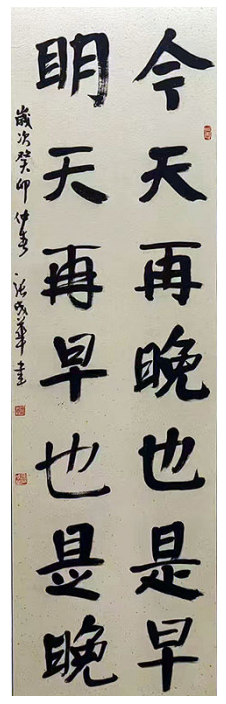 今天再晚也是早
明天再早也是晚
歲次癸卯仲春張成華書